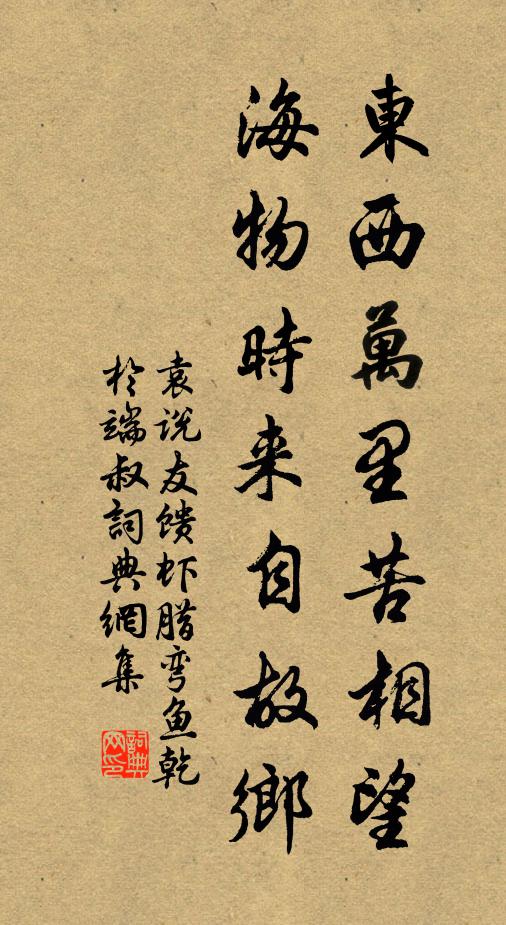 東西萬里苦相望
海物時来自故鄉
袁说友馈虾腊弯鱼乾
於端叔詞典網集
詞典网印